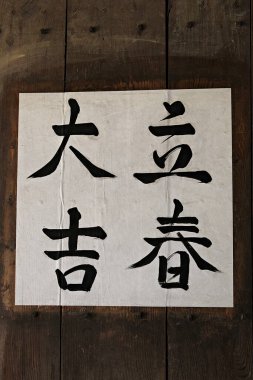 立春
大吉